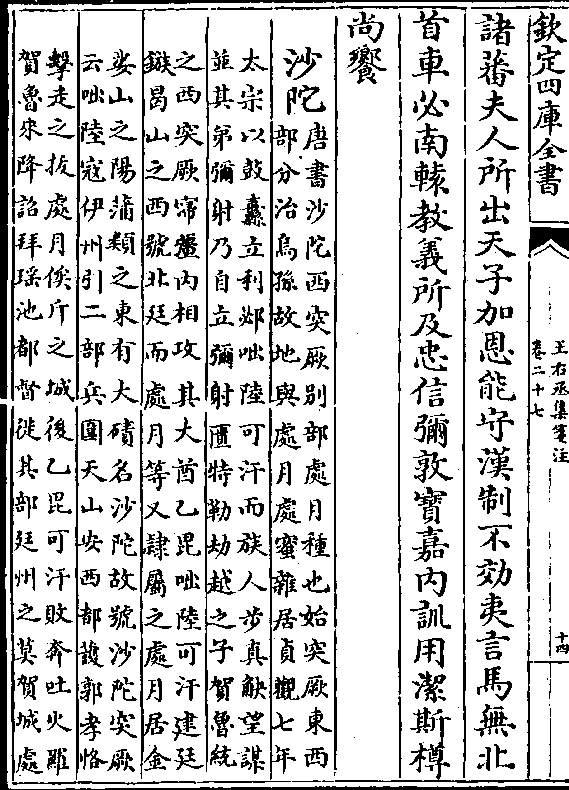 欽定四庫全書
王右丞集箋注
卷二十七
十四
諸蕃夫人所出天子加恩能守漢制不効夷言馬無北
首車必南轅教義所及忠信彌敦寶嘉内訓用潔斯樽
尚饗
沙陀
唐書沙陀西突厥别部處月種也始突厥東西
部分治烏孫故地與處月處蜜雜居貞觀七年
太宗以鼓纛立利邲咄陸可汗而族人步真觖望謀
並其弟彌射乃自立彌射匭特勒劫越之子賀魯統
之西突厥寖盛内相攻其大酋乙毘咄陸可汗建廷
鏃曷山之西號北廷而處月等又隷屬之處月居金
娑山之陽蒲類之東有大磧名沙陀故號沙陀突厥
云咄陸寇伊州引二部兵圍天山安西都䕶郭孝恪
擊走之拔處月俟斤之城後乙毘可汗敗奔吐火羅
賀魯來降詔拜瑶池都督徙其部廷州之莫賀城處